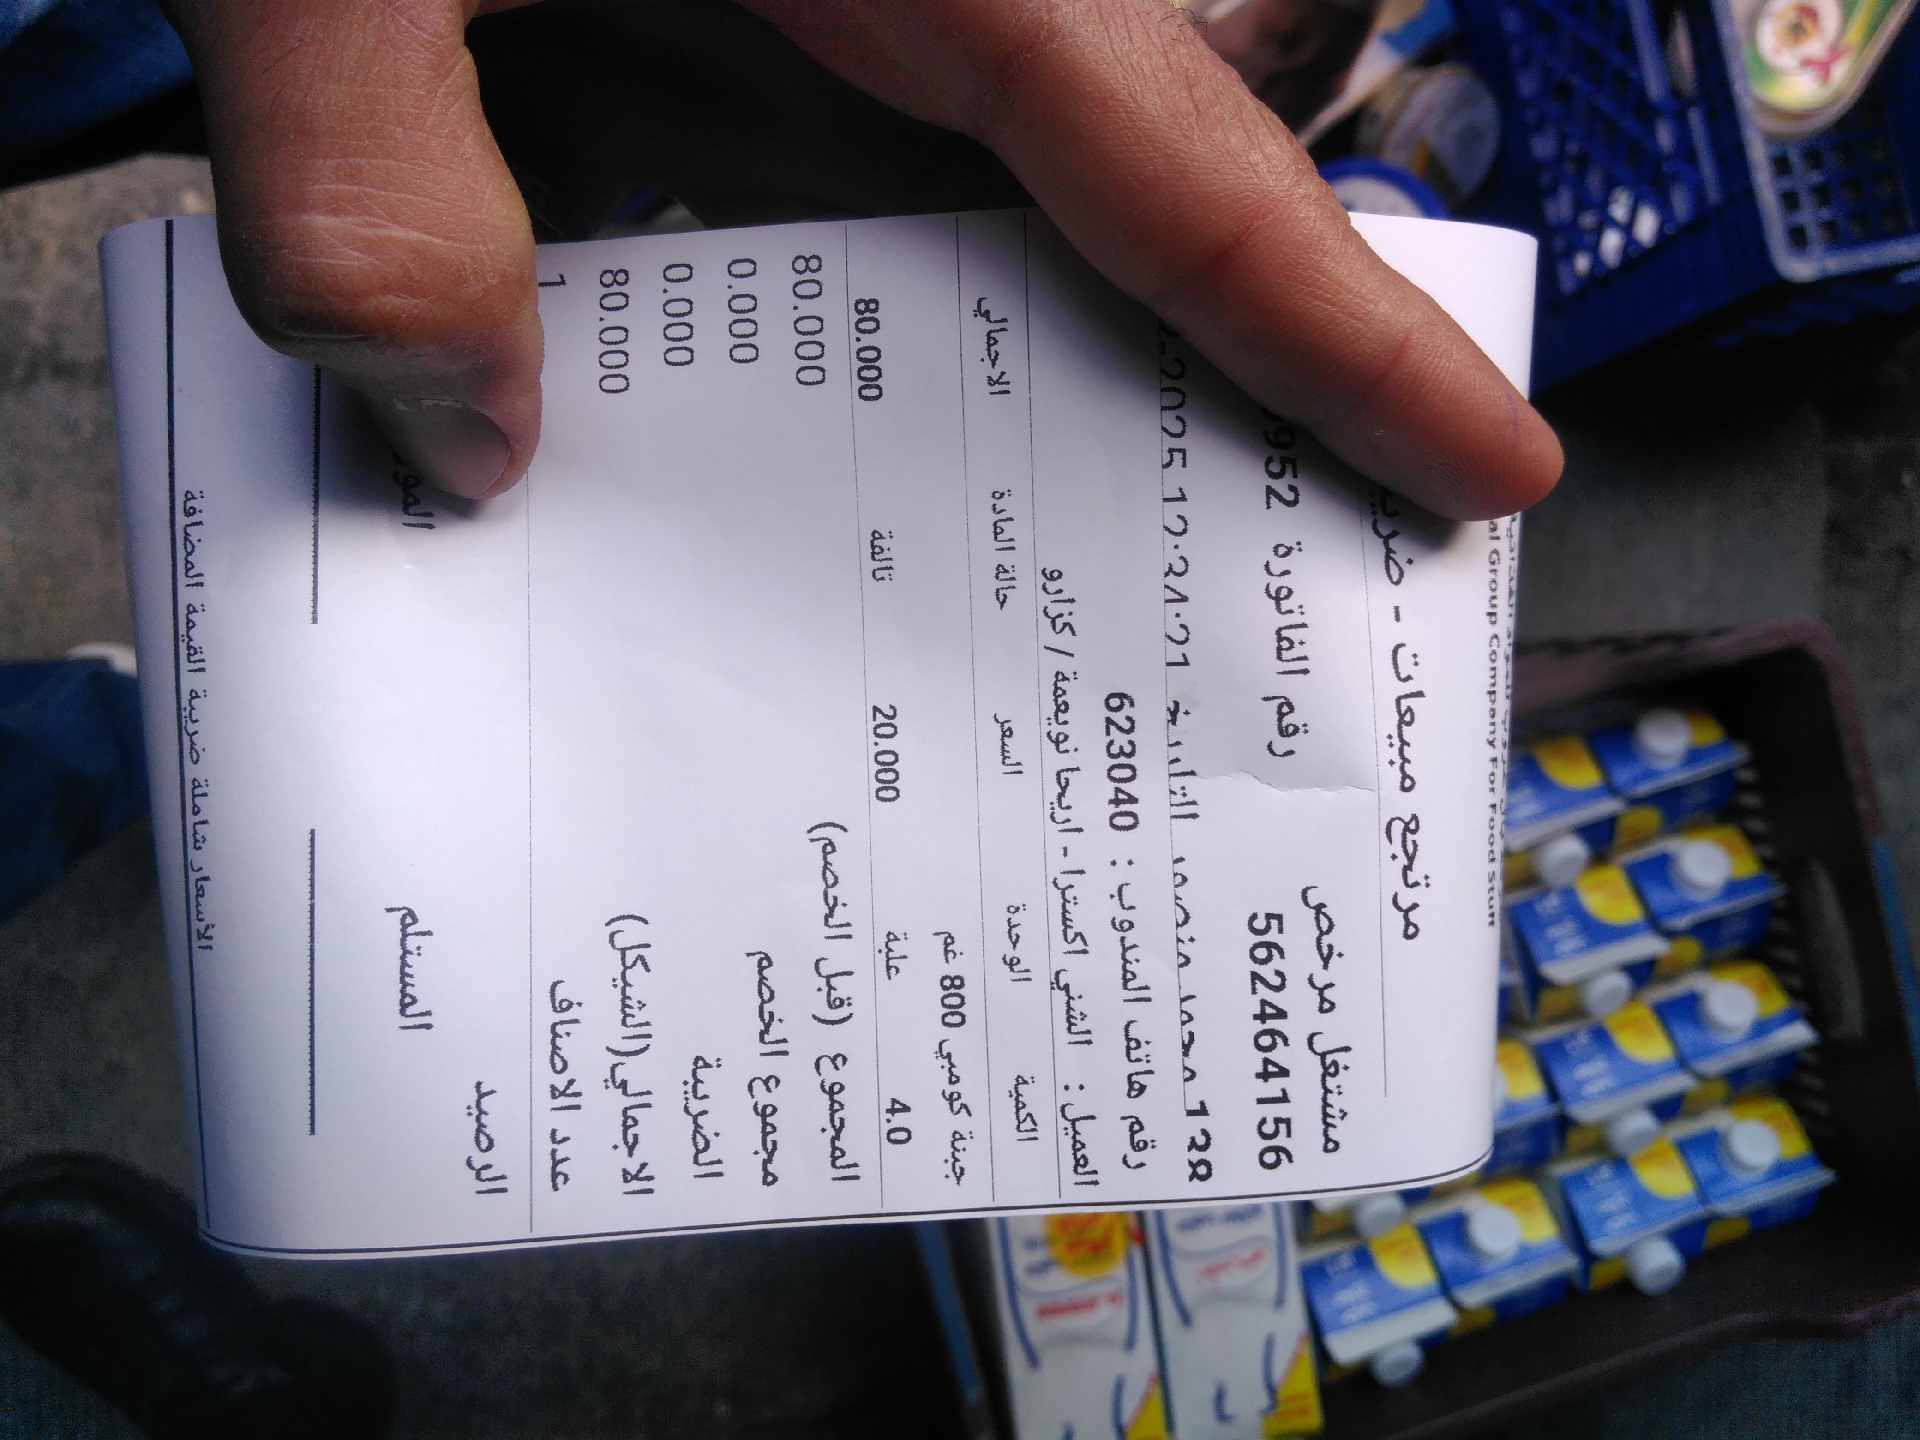 al Group Company For Food Stuff
مرتجع مبيعات -
مشتغل مرخص
562464156 رقم الفاتورة 952
128 محمد منصور التاريخ 2025 12:28:21
رقم هاتف المندوب : 623040
العميل : الشني اكسترا - اريحا نويعمة / كزارو
الكمية الوحدة السعر حالة المادة الاجمالي
جبنة كومبي 800 غم
4.0 علبة 20.000 تالفة 80.000
المجموع (قبل الخصم) 80.000
مجموع الخصم 0.000
الضريبة 0.000
الاجمالي(الشيكل) 80.000
عدد الاصناف 1
الرصيد
المستلم
الأسعار شاملة ضريبة القيمة المضافة